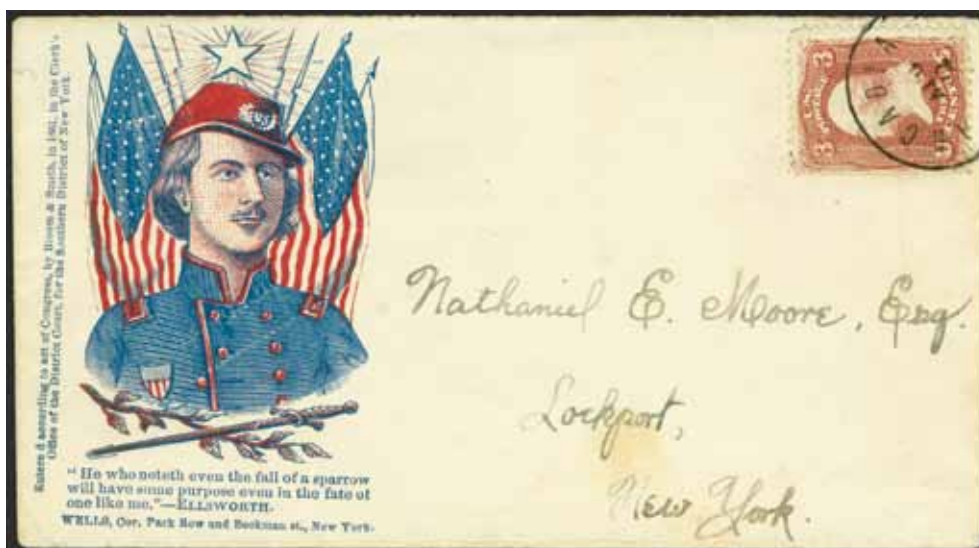 Entered according to act of Congress, by Bloom & Smith, in 1861, in the Clerk's
Office of the District Court, for the Southern District of New York
US
"He who noteth even the fall of a sparrow
will have some purpose even in the fate of
one like me."—ELLSWORTH.
WELLS, Cor. Park Row and Beekman st., New York.
3 3
U.S. POSTAGE
CAD
Nathaniel E. Moore, Esq.
Lockport,
New York.